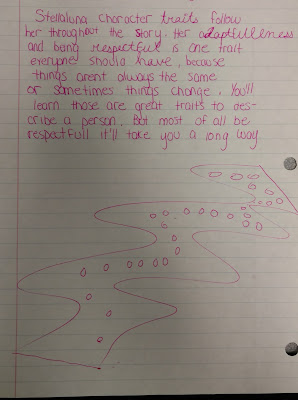 Stellaluna character traits follow
her throughout the story. Her adaptfullness
and being respectful is one trait
everyone should have, because
things arent always the same
or sometimes things change. You'll
learn those are great traits to des-
cribe a person. But most of all be
respectfull it'll take you a long way.